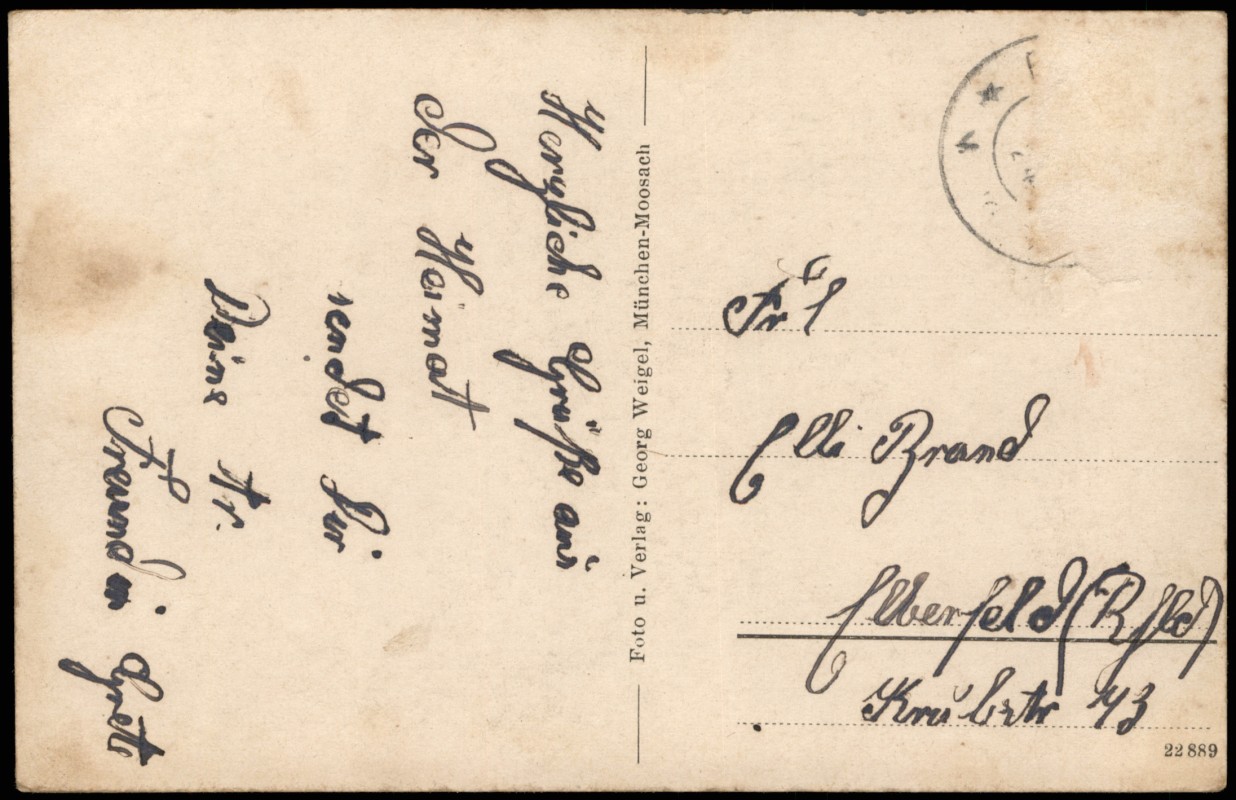 Herzliche Grüße aus
der Heimatt
sendet Dir
Deine tr.
Freundin Grette
Foto u. Verlag: Georg Weigel, München-Moosach
Frl
Elli Brand
Elberfeld (Rhld)
43
22889